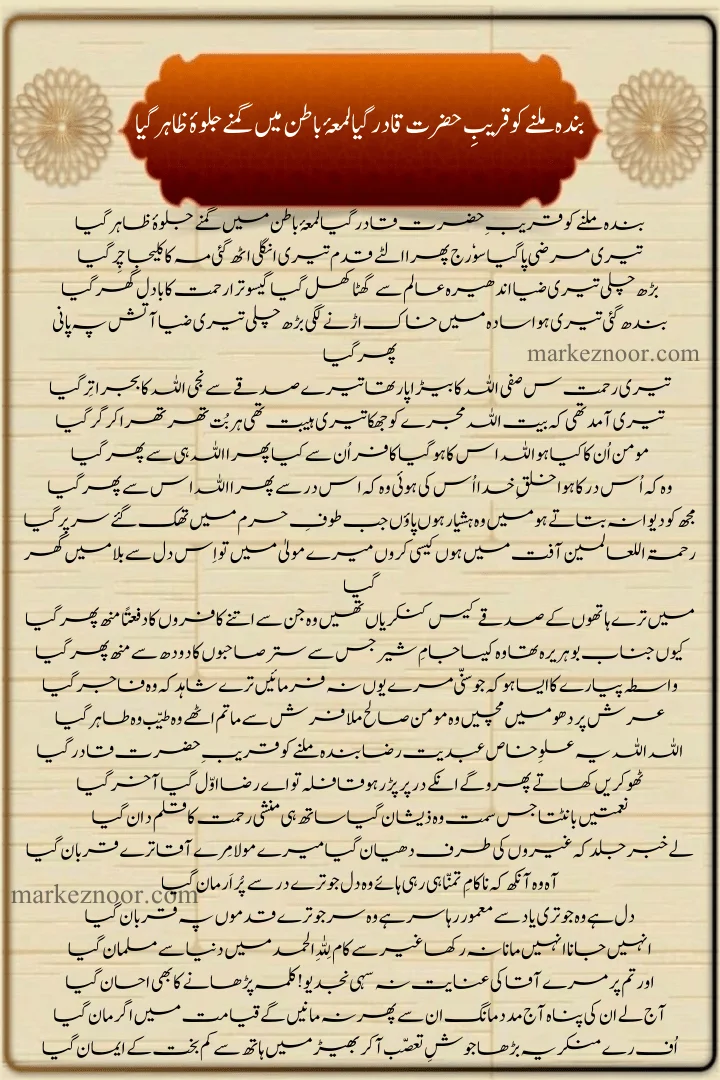 بندہ ملنے کو قریبِ حضرت قادر گیا لمعۂ باطن میں گمنے جلوۂ ظاہر گیا
بندہ ملنے کو قریبِ حضرت قادر گیا لمعۂ باطن میں گمنے جلوۂ ظاہر گیا
تیری مرضی پا گیا سورج پھرا الٹے قدم تیری انگلی اٹھ گئی مہ کا کلیجا چِر گیا
بڑھ چلی تیری ضیا اندھیرہ عالم سے گھٹا کھل گیا گیسو ترا رحمت کا بادل گھر گیا
بندھ گئی تیری ہوا سادہ میں خاک اڑنے لگی بڑھ چلی تیری ضیا آتش پہ پانی
پھر گیا
markeznoor.com
تیری رحمت س صفی اللہ کا بیڑا پار تھا تیرے صدقے سے نجی اللہ کا بجرا تِر گیا
تیری آمد تھی کہ بیت اللہ مجرے کو جھکا تیری ہیبت تھی ہر بُت تھر تھرا کر گر گیا
مومن اُن کا کیا ہوا اللہ اس کا ہو گیا کافر اُن سے کیا پھرا اللہ ہی سے پھر گیا
وہ کہ اُس در کا ہوا خلقِ خدا اُس کی ہوئی وہ کہ اس در سے پھرا اللہ اس سے پھر گیا
مجھ کو دیوانہ بتاتے ہو میں وہ ہشیار ہوں پاؤں جب طوفِ حرم میں تھک گئے سر پِر گیا
رحمۃ اللعالمین آفت میں ہوں کیسی کروں میرے مولیٰ میں تو اِس دل سے بلا میں گھر
گیا
میں ترے ہاتھوں کے صدقے کیس کنکریاں تھیں وہ جن سے اتنے کافروں کا دفعتًا منھ پھر گیا
کیوں جناب بوہریرہ تھا وہ کیسا جامِ شیر جس سے ستر صاحبوں کا دودھ سے منھ پھر گیا
واسطہ پیارے کا ایسا ہو کہ جو سنّی مرے یوں نہ فرمائیں ترے شاہد کہ وہ فاجر گیا
عرش پر دھومیں مچیں وہ مومن صالح ملا فرش سے ماتم اٹھے وہ طیّب وہ طاہر گیا
اللہ اللہ یہ علوِ خاص عبدیت رضا بندہ ملنے کو قریبِ حضرت قادر گیا
ٹھوکریں کھاتے پھرو گے انکے در پر پڑ رہو قافلہ تو اے رضا اوّل گیا آخر گیا
نعمتیں بانٹتا جس سمت وہ ذیشان گیا ساتھ ہی منشی رحمت کا قلم دان گیا
لے خبر جلد کہ غیروں کی طرف دھیان گیا میرے مولا مِرے آقا ترے قربان گیا
آہ وہ آنکھ کہ ناکامِ تمنّا ہی رہی ہائے وہ دل جو ترے در سے پُر اَرمان گیا
markeznoor.com
دل ہے وہ جو تری یاد سے معمور رہا سر ہے وہ سر جو ترے قدموں پہ قربان گیا
انہیں جانا انہیں مانا نہ رکھا غیر سے کام للہِ الحمد میں دنیا سے مسلمان گیا
اور تم پر مرے آقا کی عنایت نہ سہی نجدیو! کلمہ پڑھانے کا بھی احسان گیا
آج لے ان کی پناہ آج مدد مانگ ان سے پھر نہ مانیں گے قیامت میں اگر مان گیا
اُف رے منکر یہ بڑھا جوشِ تعصّب آکر بھیڑ میں ہاتھ سے کم بخت کے ایمان گیا